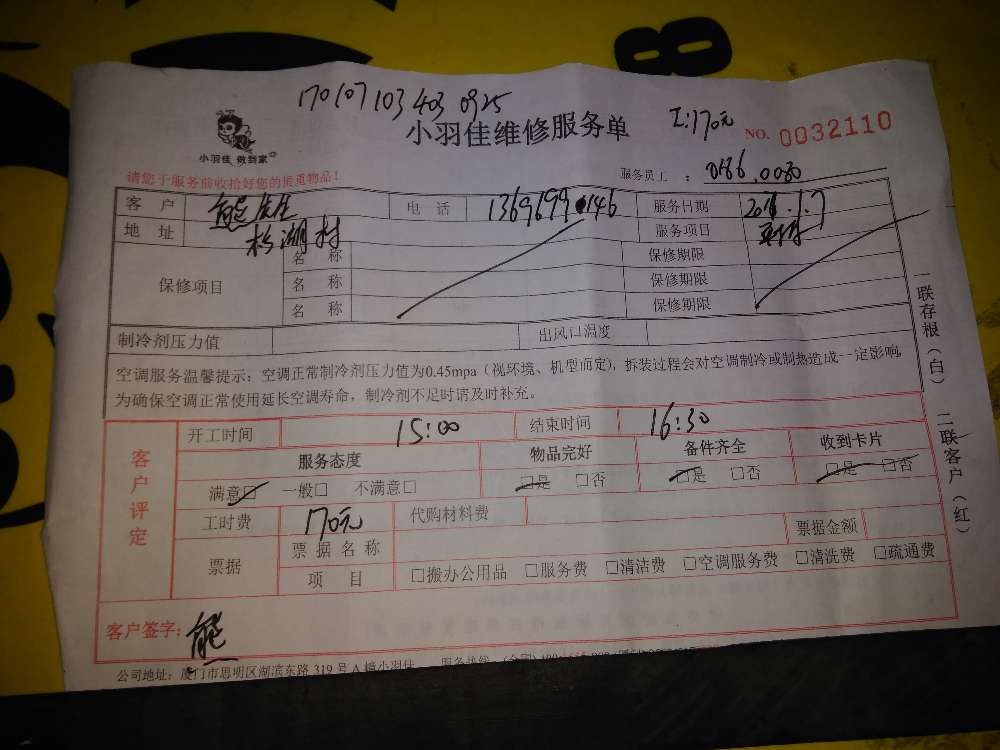 170107103 403 0925
小羽佳维修服务单 工:170元 NO. 0032110
小羽佳 做到家
请您于服务前收拾好您的贵重物品! 服务员工: 0186.0080
客户 熊先生 电话 服务日期
地址 杉湖村 服务项目
保修项目 名称 保修期限
名称 保修期限
名称 保修期限
制冷剂压力值 出风口温度
空调服务温馨提示:空调正常制冷剂压力值为0.45mpa(视环境、机型而定),拆装过程会对空调制冷或制热造成一定影响,
为确保空调正常使用延长空调寿命,制冷剂不足时请及时补充。
客户评定
开工时间 15:00 结束时间 16:30
服务态度 物品完好 备件齐全 收到卡片
满意□ 一般□ 不满意□ □是 □否 □是 □否 □是 □否
工时费 170元 代购材料费
票据 票据名称 票据金额
项目 □搬办公用品 □服务费 □清洁费 □空调服务费 □清洗费 □疏通费
客户签字: 熊
公司地址:厦门市思明区湖滨东路 319 号 A 幢小羽佳 服务热线:
一联存根(白) 二联客户(红)